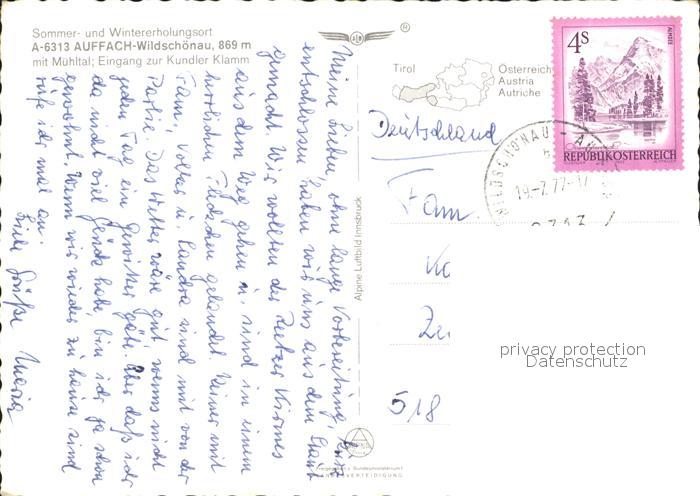 Sommer- und Wintererholungsort
A-6313 AUFFACH-Wildschönau, 869 m
mit Mühltal; Eingang zur Kundler Klamm
®
Tirol
Österreich
Austria
Autriche
4S
ALMSEE
REPUBLIK ÖSTERREICH
WILDSCHÖNAU
19.-7.77-17
6313
Meine Lieben, ohne lange Vorbereitung, kurz
entschlossen haben wir uns aus dem Staub
gemacht. Wir wollten der Kirmes
aus dem Weg gehen u. sind in einem
herrlichen Fleckchen gelandet. Reiner mit
Fam., Volker u. Sandra sind mit von der
Partie. Das Wetter wäre gut, wenns nicht
jeden Tag ein Gewitter gäb. Aber daß ich
da nicht viel Glück habe, bin ich ja schon
gewohnt. Wenn wir wieder zu hause sind
rufe ich mal an.
Viele Grüße Maria
Alpine Luftbild Innsbruck
Deutschland
Fam.
518
privacy protection
Datenschutz
Freigegeben v. Bundesministerium f.
LANDESVERTEIDIGUNG